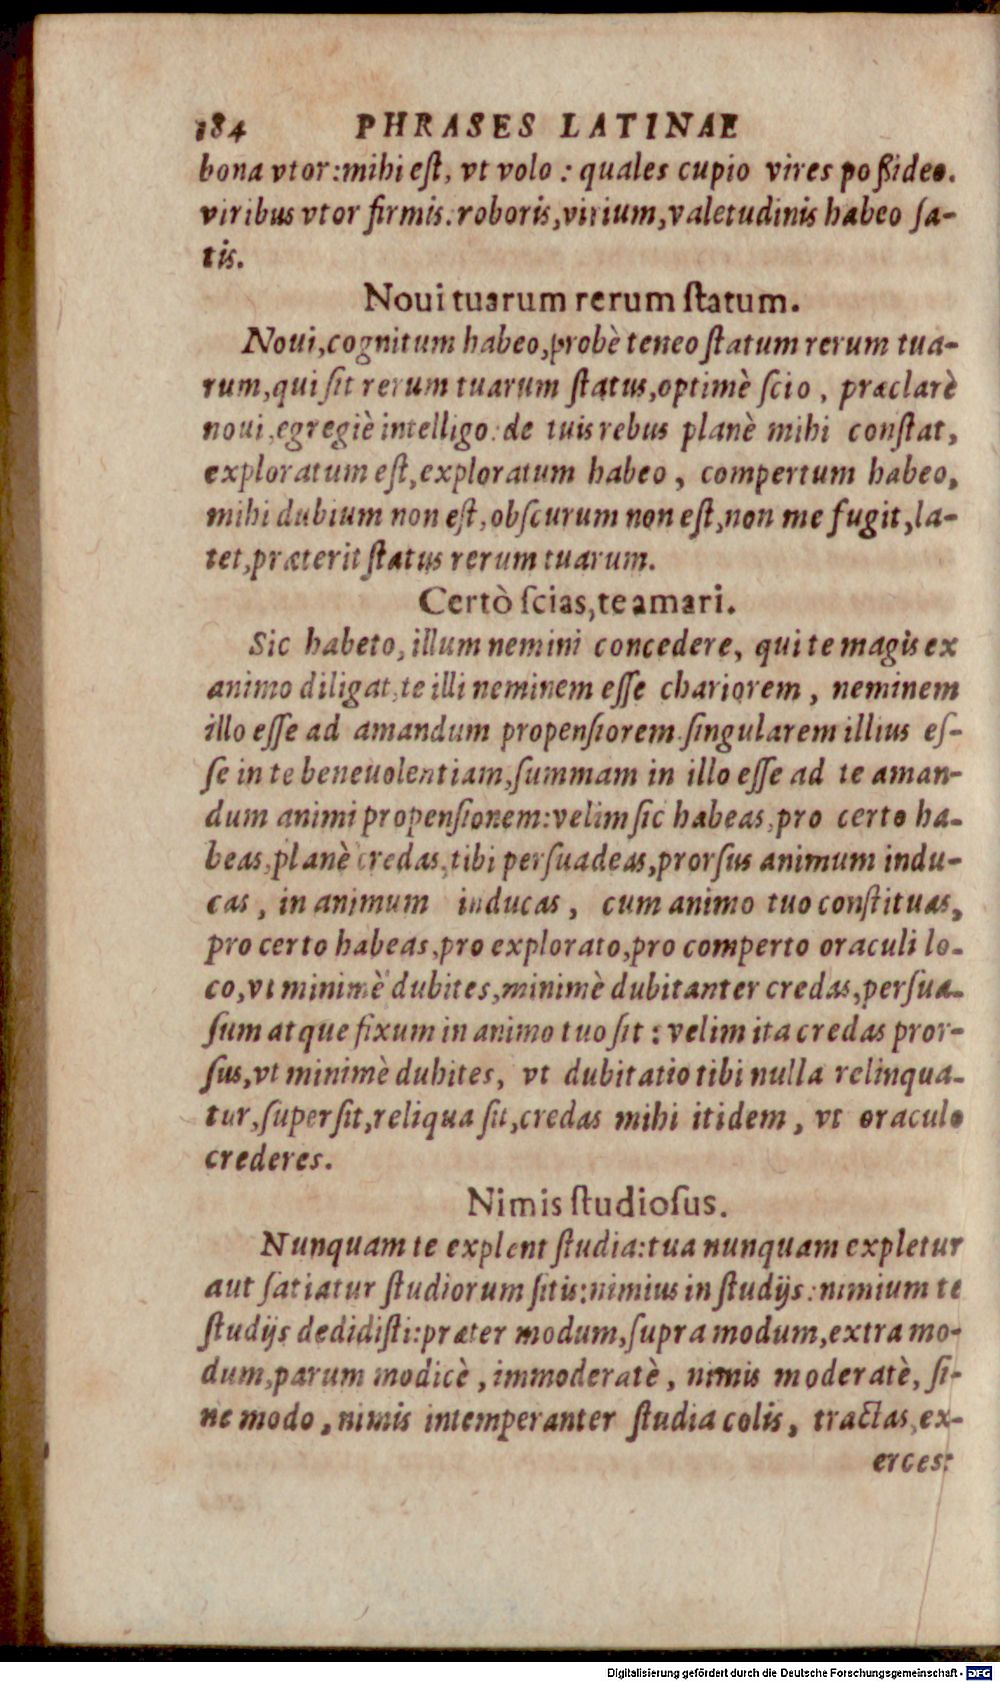 184 PHRASES LATINAE
bona vtor: mihi eſt, vt volo: quales cupio vires poßideo.
viribus vtor firmis: roboris, virium, valetudinis habeo ſa-
tis.
Noui tuarum rerum ſtatum.
Noui, cognitum habeo, probè teneo ſtatum rerum tua-
rum, qui ſit rerum tuarum ſtatus, optimè ſcio, præclarè
noui, egregiè intelligo: de tuis rebus planè mihi conſtat,
exploratum eſt, exploratum habeo, compertum habeo,
mihi dubium non eſt, obſcurum non eſt, non me fugit, la-
tet, præterit ſtatus rerum tuarum.
Certò ſcias, te amari.
Sic habeto, illum nemini concedere, qui te magis ex
animo diligat, te illi neminem eſſe chariorem, neminem
illo eſſe ad amandum propenſiorem. ſingularem illius eſ-
ſe in te beneuolentiam, ſummam in illo eſſe ad te aman-
dum animi propenſionem: velim ſic habeas, pro certo ha-
beas, planè credas, tibi perſuadeas, prorſus animum indu-
cas, in animum inducas, cum animo tuo conſtituas,
pro certo habeas, pro explorato, pro comperto oraculi lo-
co, vt minimè dubites, minimè dubitanter credas, perſua-
ſum atque fixum in animo tuo ſit: velim ita credas pror-
ſus, vt minimè dubites, vt dubitatio tibi nulla relinqua-
tur, ſuperſit, reliqua ſit, credas mihi itidem, vt oraculo
crederes.
Nimis ſtudioſus.
Nunquam te explent ſtudia: tua nunquam expletur
aut ſatiatur ſtudiorum ſitis: nimius in ſtudijs: nimium te
ſtudijs dedidiſti: præter modum, ſupra modum, extra mo-
dum, parum modicè, immoderatè, nimis moderatè, ſi-
ne modo, nimis intemperanter ſtudia colis, tractas, ex-
erces:
Digitalisierung gefördert durch die Deutsche Forschungsgemeinschaft - DFG